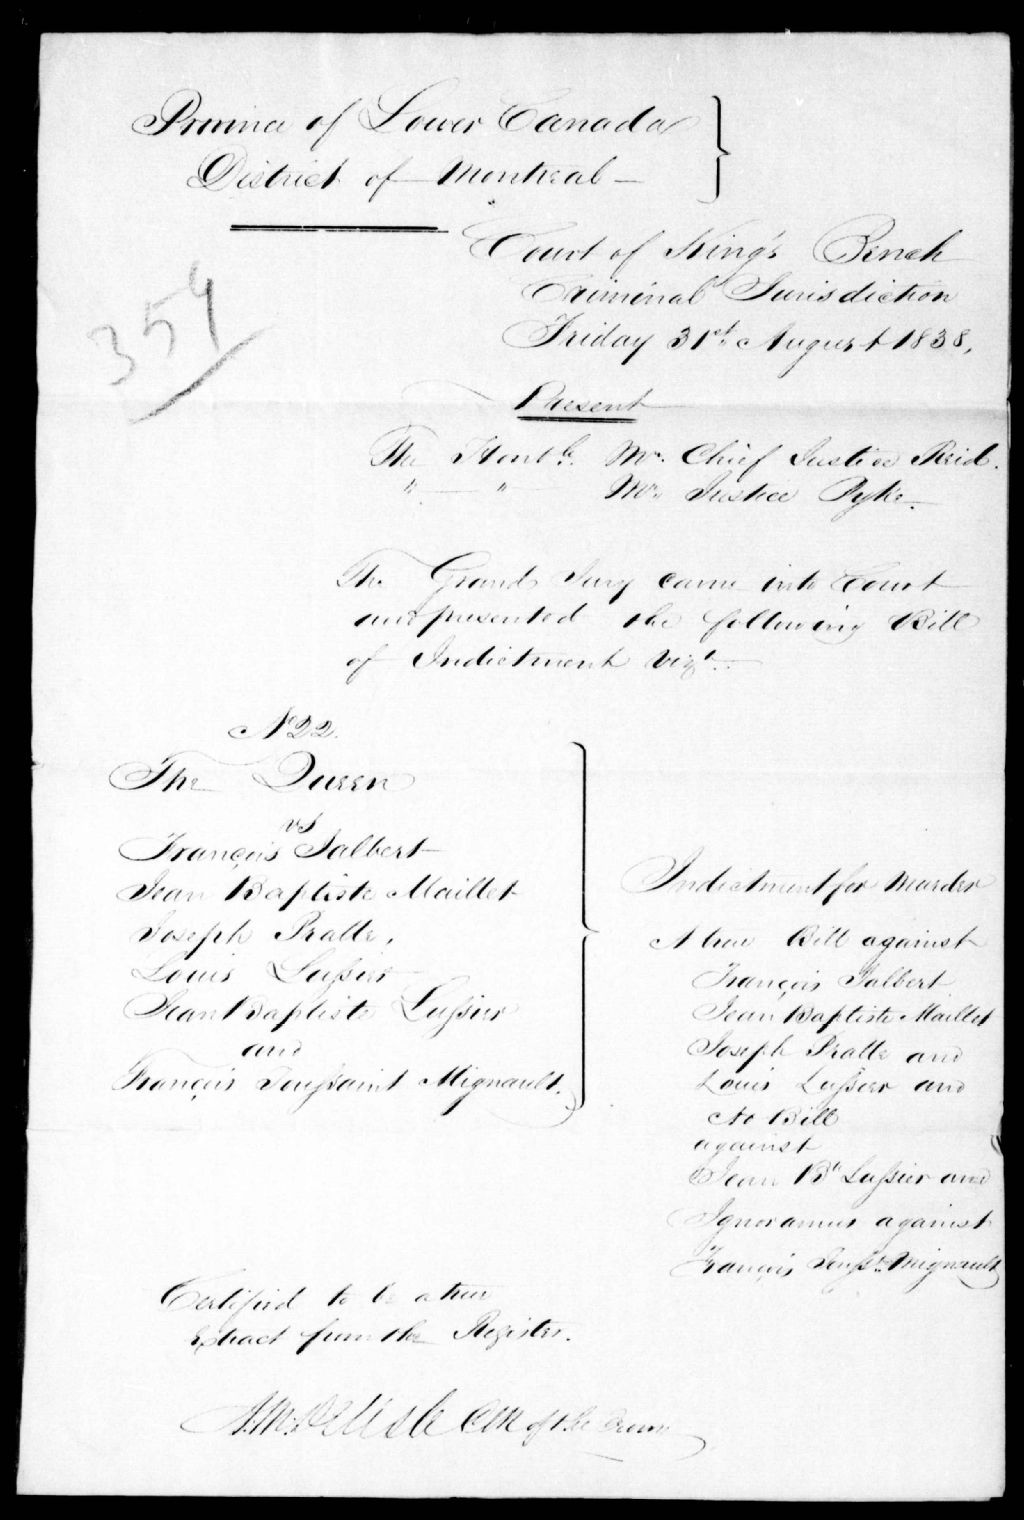 Province of Lower Canada
District of Montreal —
Court of King's Bench
Criminal Jurisdiction
Friday 31st August 1838,
354
Present
The Honble. Mr. Chief Justice Reid.
" — " Mr. Justice Pyke.
The Grand Jury came into Court
and presented the following Bill
of Indictment vizt.:
No 22.
The Queen
vs
François Jalbert
Jean Baptiste Maillet
Joseph Pratte,
Louis Lussier
Jean Baptiste Lussier
and
François Toussaint Mignault.
Indictment for Murder
A true Bill against
François Jalbert
Jean Baptiste Maillet
Joseph Pratte and
Louis Lussier and
No Bill
against
Jean Bte Lussier and
Ignoramus against
François Tousst. Mignault
Certified to be a true
Extract from the Register.
A. M. Delisle Clk of the Crown